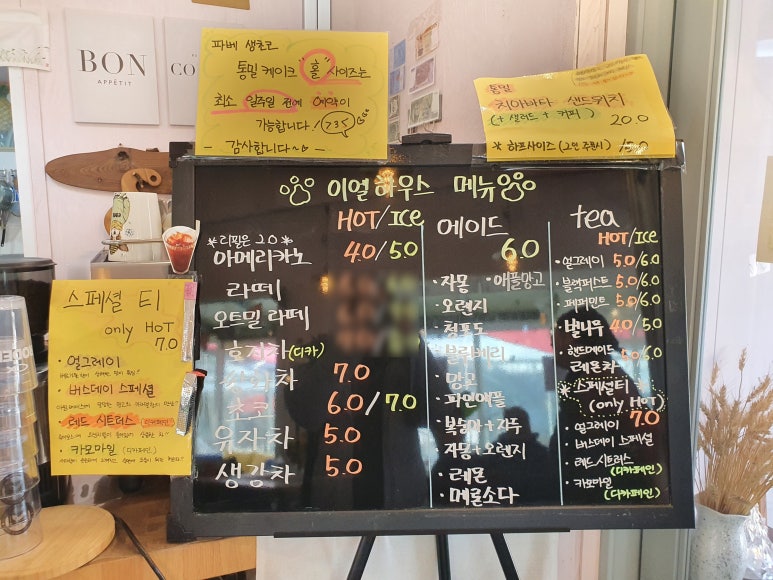 BON
APPÉTIT
CO
파베 생초코
통밀 케이크 "홀" 사이즈는
최소 일주일 전에 예약이
가능합니다!
감사합니다~
통밀
치아바타 샌드위치
(+ 샐러드 + 커피) 20.0
* 하프사이즈 (2인 주문시)
이얼하우스 메뉴
HOT/ICE
*리필은 2.0*
아메리카노 4.0/5.0
라떼
오트밀 라떼
호지차 (디카)
7.0
초코 6.0/7.0
유자차 5.0
생강차 5.0
에이드
6.0
·자몽 ·애플망고
·오렌지
·청포도
·블루베리
·망고
·파인애플
·복숭아+자두
·자몽+오렌지
·레몬
·메론소다
tea
HOT/ICE
·얼그레이 5.0/6.0
·블랙퍼스트 5.0/6.0
·페퍼민트 5.0/6.0
·보이우롱 4.0/5.0
·핸드메이드
레몬차 5.0/6.0
스페셜티
(only HOT)
7.0
·얼그레이
·버스데이 스페셜
·레드 시트러스
(디카페인)
·카모마일
(디카페인)
스페셜 티
only HOT
7.0
·얼그레이
·버스데이 스페셜
·레드 시트러스 (디카페인)
·카모마일 (디카페인)